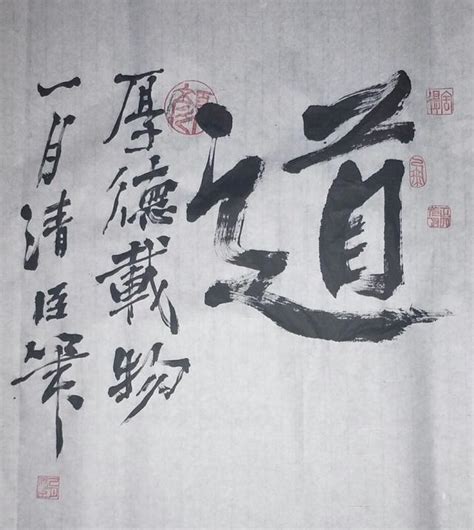 道
厚德載物
一月清臣筆